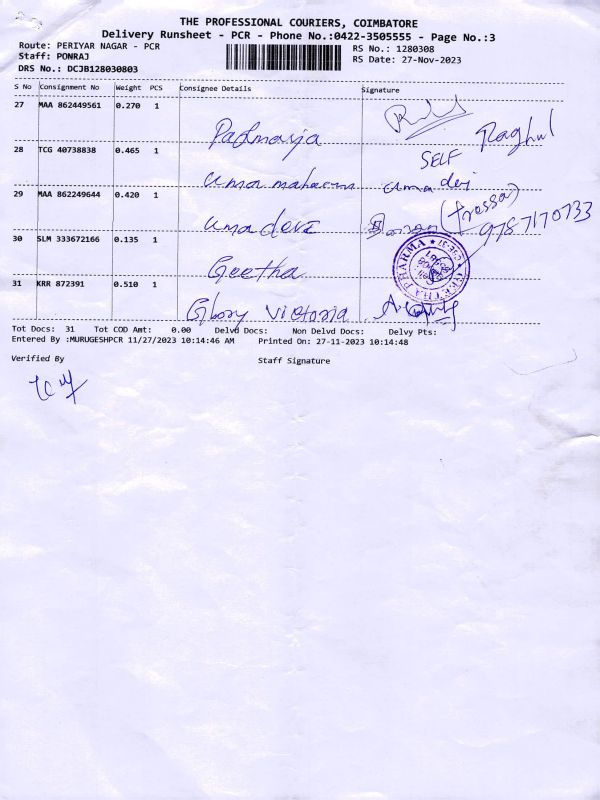 THE PROFESSIONAL COURIERS, COIMBATORE
Delivery Runsheet - PCR - Phone No.:0422-3505555 - Page No.:3
Route: PERIYAR NAGAR - PCR
RS No.: 1280308
Staff: PONRAJ
RS Date: 27-Nov-2023
DRS No.: DCJB128030803
S No Consignment No Weight PCS Consignee Details Signature
27 MAA 862449561 0.270 1
Padmavja
Raghul
28 TCG 40738838 0.465 1
SELF
uma maheswa uma devi
29 MAA 862249644 0.420 1
uma devi
(trossa)
9787170733
30 SLM 333672166 0.135 1
Geetha
GEETHA PHARMA
31 KRR 872391 0.510 1
Glory victoria
Tot Docs: 31 Tot COD Amt: 0.00 Delvd Docs: Non Delvd Docs: Delvy Pts:
Entered By :MURUGESHPCR 11/27/2023 10:14:46 AM Printed On: 27-11-2023 10:14:48
Verified By Staff Signature